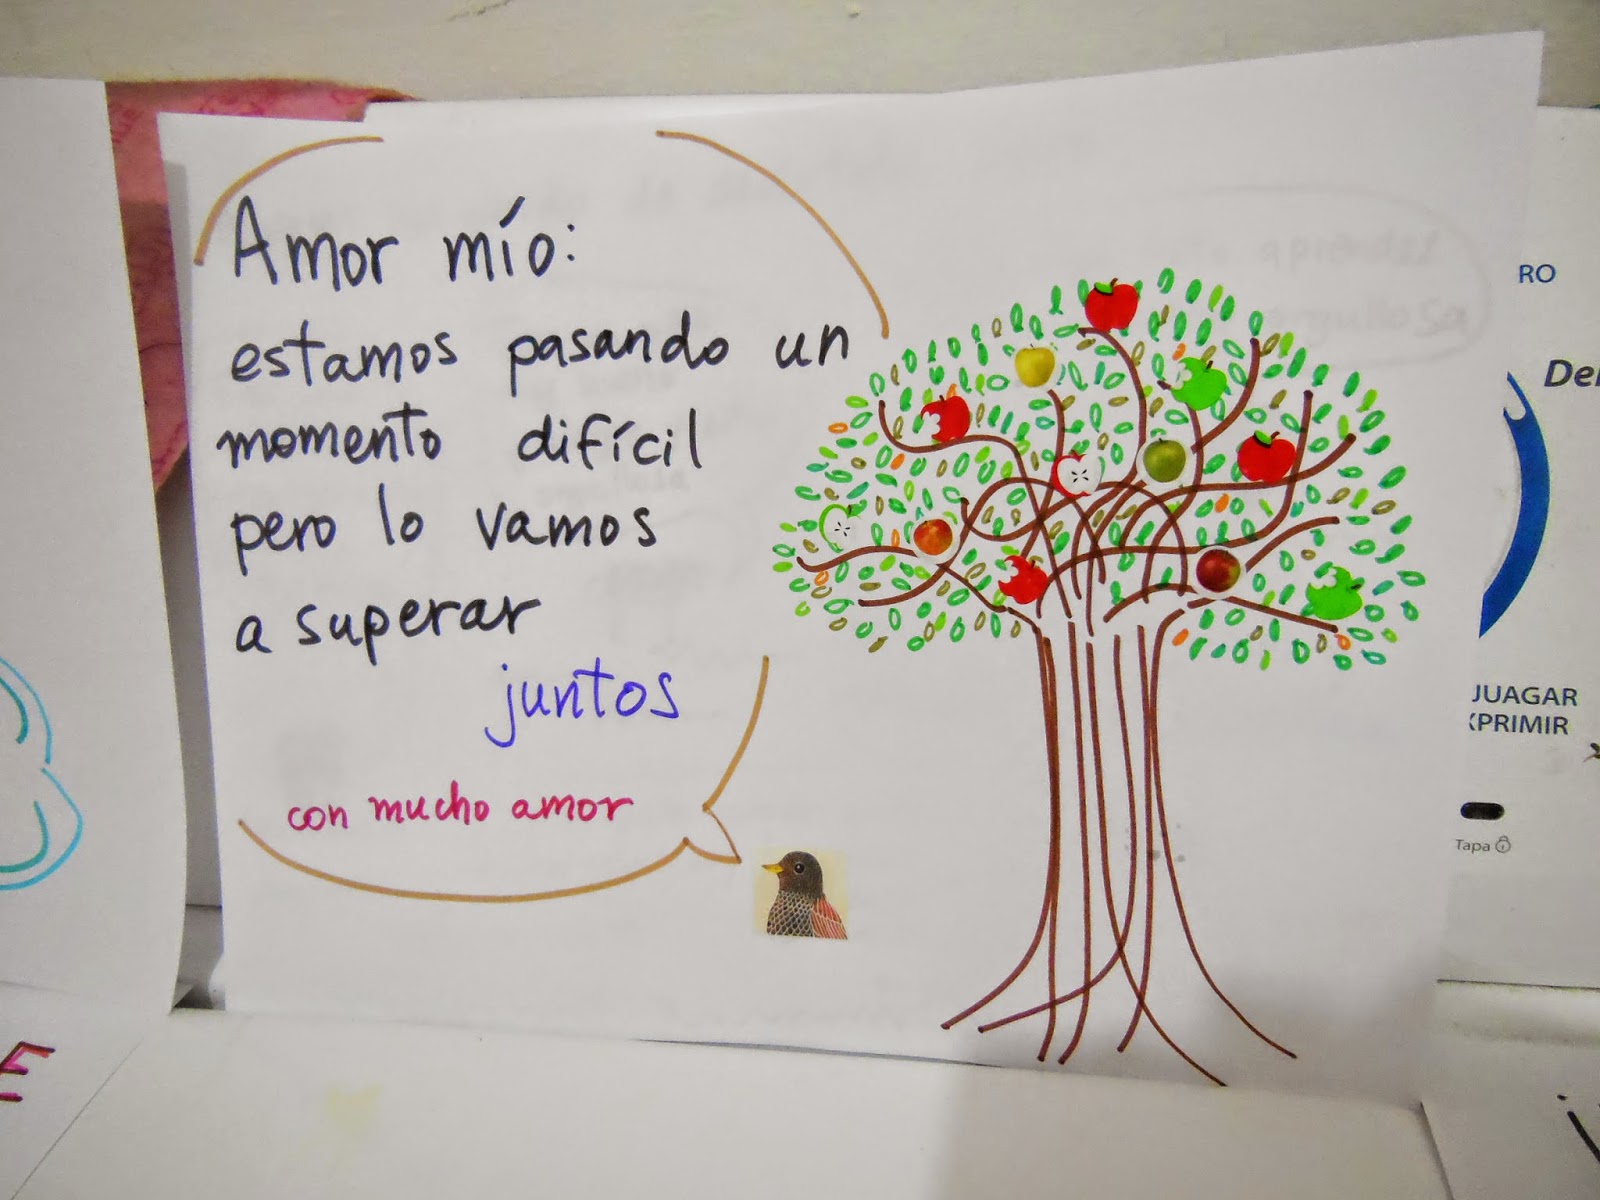 Amor mío:
estamos pasando un
momento difícil
pero lo vamos
a superar
juntos
con mucho amor
RO
JUAGAR
XPRIMIR
Tapa
E